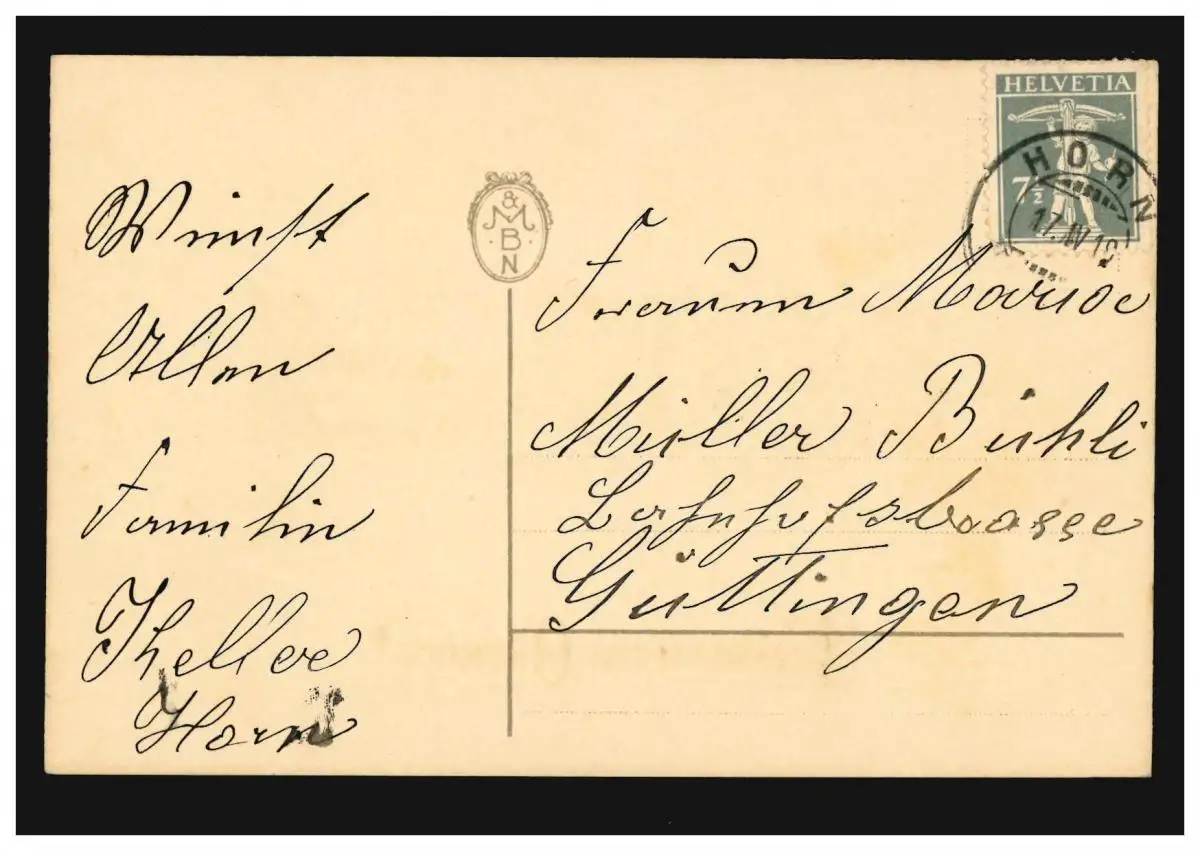 HELVETIA
7½
HORN
17.IV.19
& M B N
Wünscht
Allen
Familie
Keller
Horn
Marie
Müller Bühli
Bahnhofstrasse
Güttingen